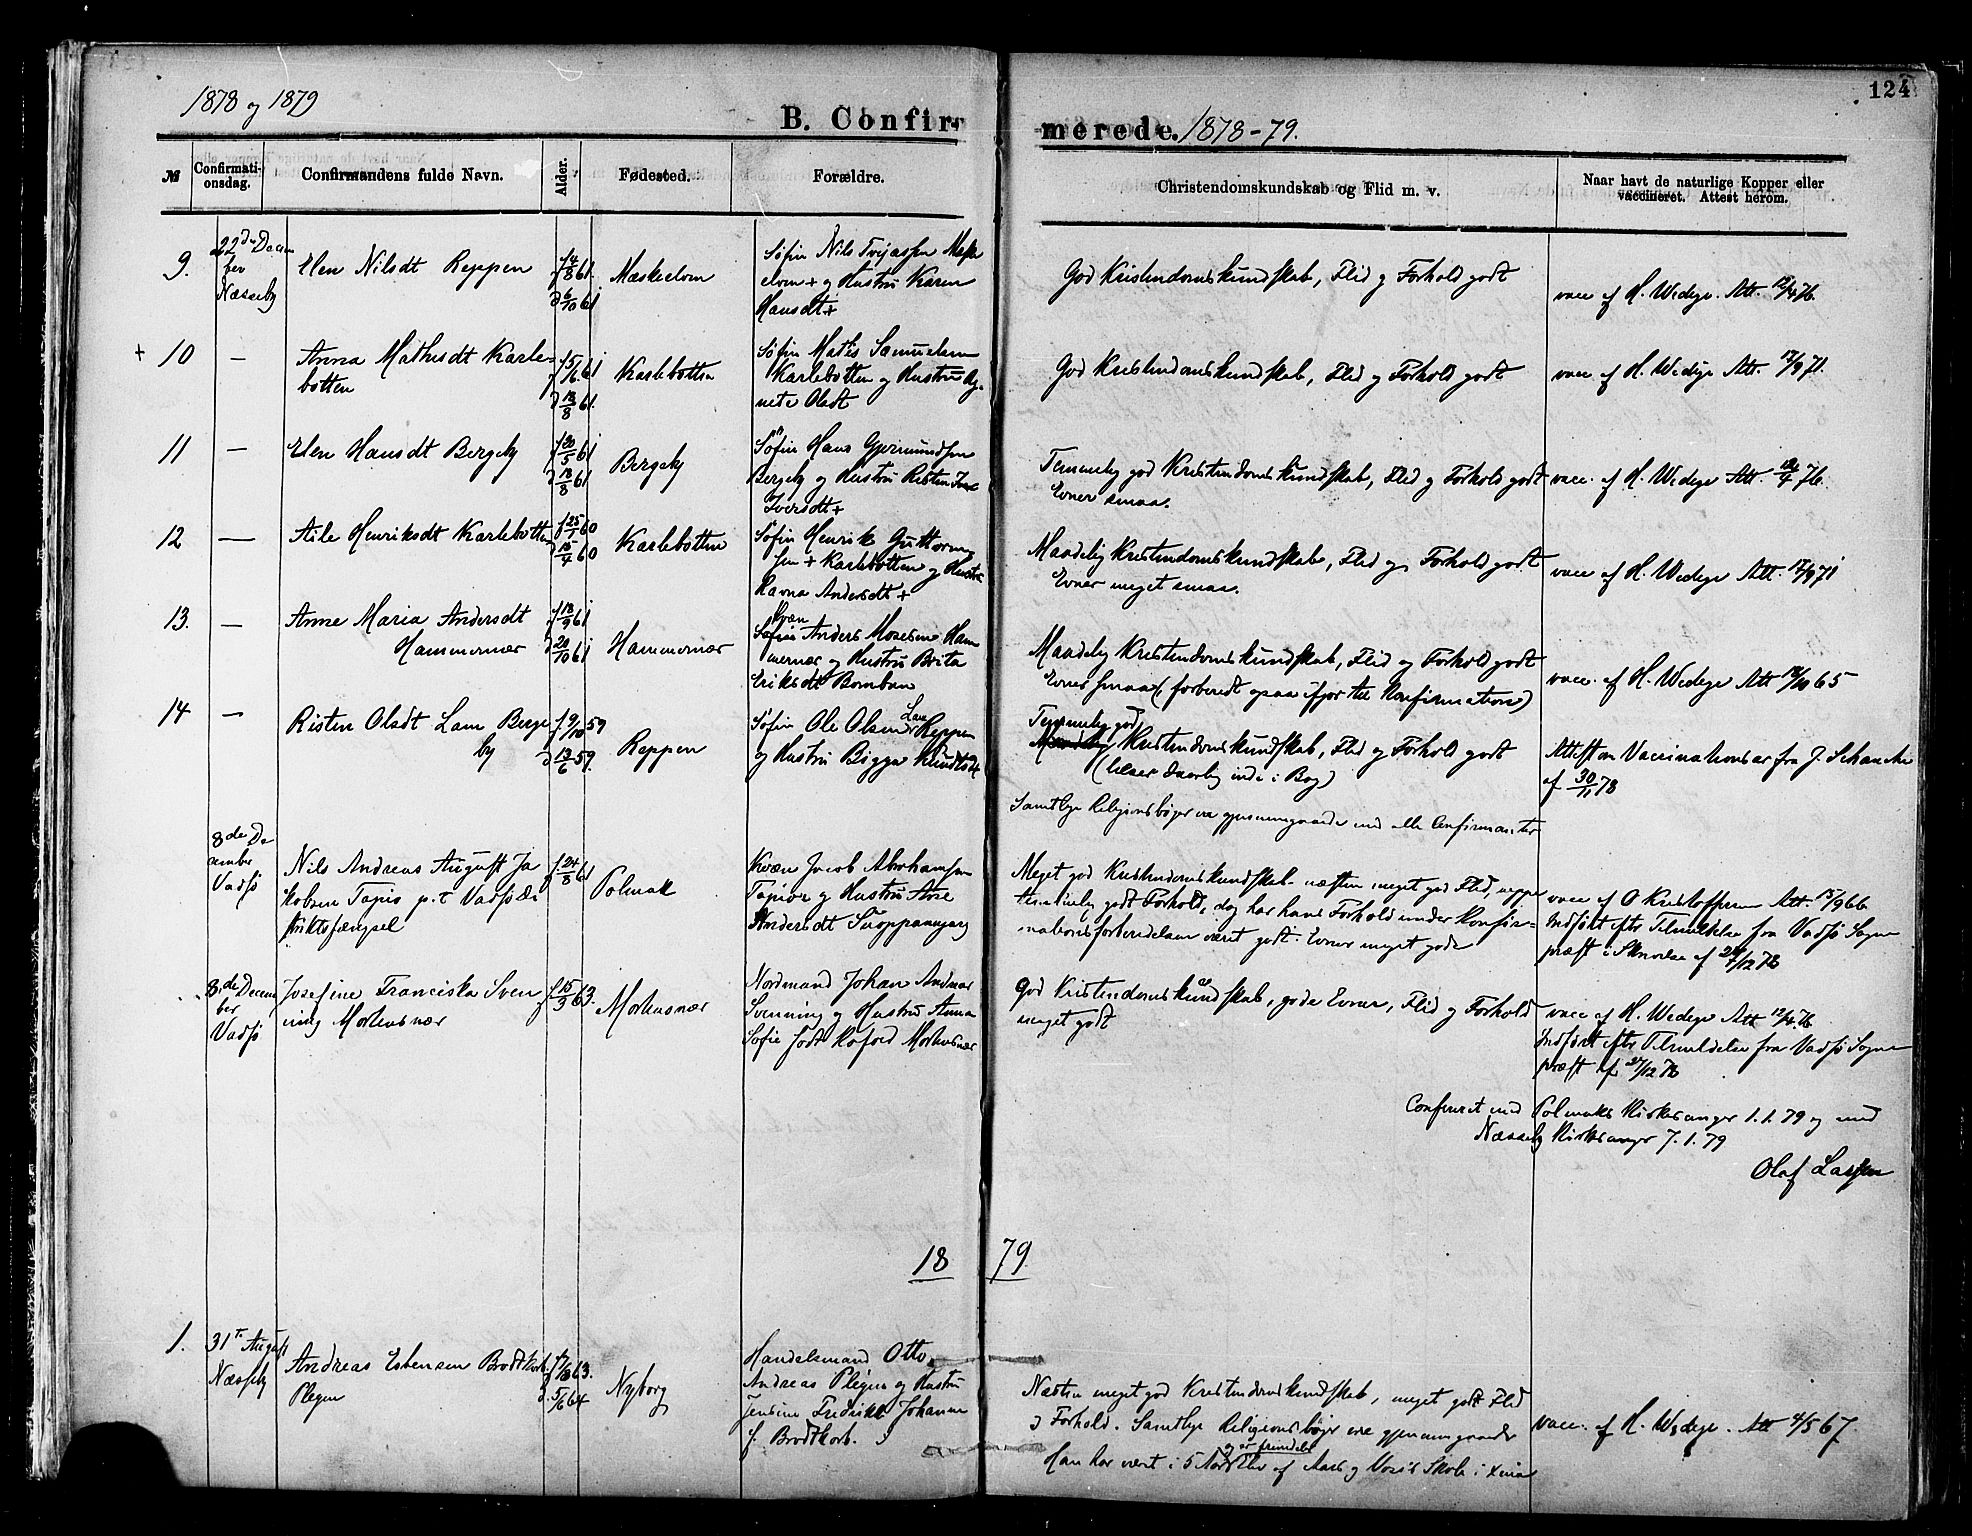 124
1878 og 1879
B. Confir-
merede. 1878-79.
№
Confirmati-
onsdag.
Confirmandens fulde Navn.
Alder.
Fødested.
Forældre.
Christendomskundskab og Flid m. v.
Naar havt de naturlige Kopper eller
vaccineret. Attest herom.
9.
22de Decem
ber
Næsseby
Elen Nilsdt Reppen
f 4/8 61.
d 6/10 61
Mæskelom
Søfin Nils
elvm + og Hustru Karen
Hansdt +
God Kristendomskundskab, Flid og Forhold godt
vacc af H. Wedege. Att. 12/4 76.
+ 10
—
Anna Mathisdt Karle-
botten
f 5/6 61
d 18/8 61.
Karlebotten
Søfin Mathis Samuelsen
Karlebotten og Hustru Ag-
nete Olsdt
God Kristendomskundskab, Flid og Forhold godt
vacc af H. Wedege Att. 12/9 71.
11
—
Elen Hansdt Bergeby
f 30/5 61
d 18/8 61
Bergeby
Søfin Hans Gjermundsen
Bergeby og Hustru Risten
Iversdt +
Temmelig god Kristendomskundskab, Flid og Forhold godt
Evner smaa.
vacc. af H. Wedege Att. 12/4 76.
12
—
Aile Henriksdt Karlebotten
f 25/1 60
d 15/4 60
Karlebotten
Søfin Henrik Guttorm
sen + Karlebotten og Hustru
Ravna Andersdt +
Maadelig Kristendomskundskab, Flid og Forhold godt
Evner meget smaa.
vacc af H. Wedege Att. 12/9 71
13.
—
Anne Maria Andersdt
Hammernær
f 18/9 61
d 20/10 61
Hammernær
Kvæn
Søfin Anders Mosesen Ham
mernær og Hustru Brita
Eriksdt Bomban
Maadelig Kristendomskundskab, Flid og Forhold godt
Evner smaa (forberedt ogsaa ifjor til Konfirmation)
vacc. af H. Wedege Att 12/10 65
14
—
Risten Olsdt Lam Berge
by
f 9/10 59
d 13/6 59.
Reppen
Søfin Ole Olsen Lam Reppen
og Hustru Bigga Knudsdt
Temmelig god
Maadelig Kristendomskundskab, Flid og Forhold godt
(læser daarlig inde i Bog)
Attest om Vaccinationsar fra J. Schanche
af 30/11 78
Samtlige Religionsbøger ere gjennemgaaede med alle Confirmanter
8de De
cember
Vadsø
Nils Andreas August Ja
kobsen Tapio p.t Vadsø Di
striktsfængsel
f. 24/8 61
Polmak
Kvæn Jacob Abrahamsen
Tapior og Hustru Ane
Andersdt Suoppanjarg
Meget god Kristendomskundskab næsten meget god Flid,
temmelig godt Forhold, dog har hans Forhold under Konfir=
mationsforberedelsen været godt. Evner meget gode
vacc af O Kristoffersen Att. 15/9 66
Indført efter Tilmeldelse fra Vadsø Sogne
præst i Skrivelse af 27/12 78
8de Decem
ber
Vadsø
Josefine Franciska Sven
ning Mortensnær
f 15/3 63.
Mortensnær
Nordmand Johan Andreas
Svenning og Hustru Anna
Sofie Jodt Kofoed Mortensnær
God Kristendomskundskab, gode Evner, Flid og Forhold
meget godt
vacc af H. Wedege Att 12/4 76
Indført efter Tilmeldelse fra Vadsø Sogne
præst af 27/12 78
Confereret med Polmaks Kirkesanger 1.1.79 og med
Næsseby Kirkesanger 7.1.79
Olaf Lassen
18 79
1.
31te August
Næsseby
Andreas Esbensen Brodtkorb
Plejen
f. 17/8 63.
d. 5/6 64
Nyborg
Handelsmand Otto
Andreas Plejen og Hustru
Jensine Fredrikke Johanne
f. Brodtkorb.
Næsten meget god Kristendomskundskab, meget godt Flid
og Forhold. Samtlige Religionsbøger ere gjennemgaaede
Han har været i 5 Aar Elev af Aars og Voss's Skole i Xnia
vacc. af H. Wedege. Att 4/5 67.